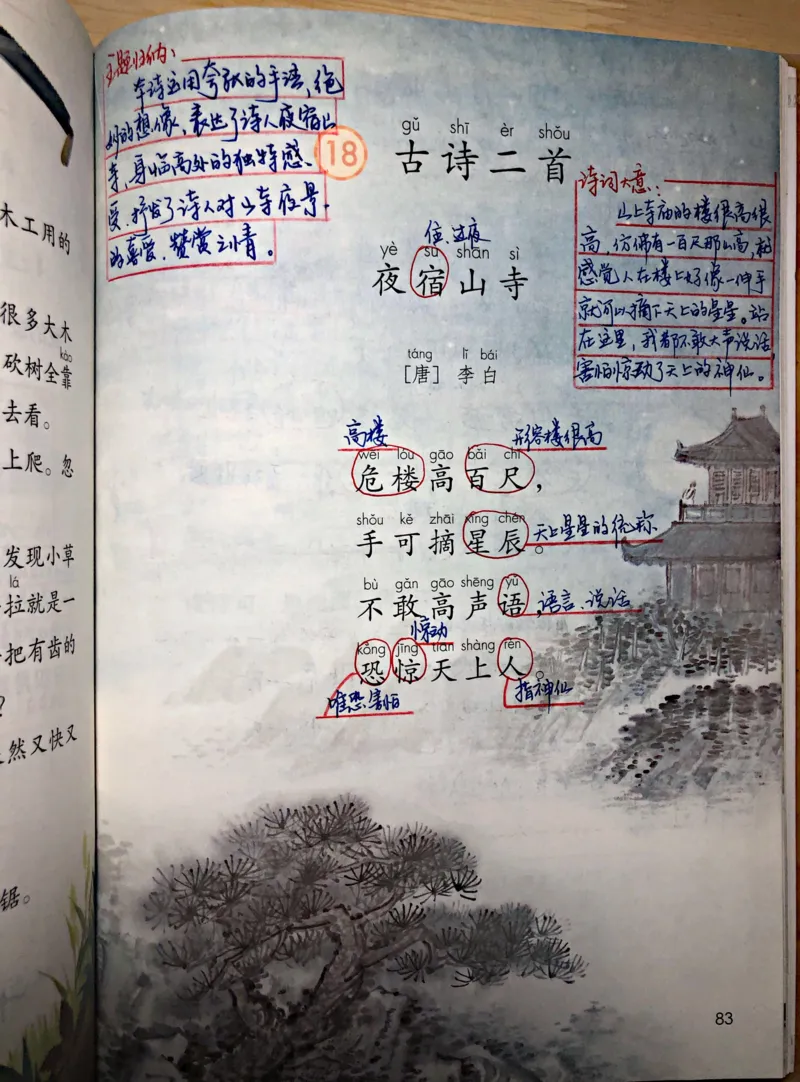 木工用的
很多大木
kào
砍树全靠
去看。
上爬。忽
发现小草
lá
拉就是一
把有齿的
?
然又快又
锯。
主题归纳：
本诗运用夸张的手法，绝
妙的想像，表达了诗人夜宿山
寺，身临高处的独特感
受，抒发了诗人对山寺夜景
的喜爱、赞赏之情。
18
gǔ shī èr shǒu
古诗二首
诗词大意：
山上寺庙的楼很高很
高，仿佛有一百尺那么高，就
感觉人在楼上好像一伸手
就可以摘下天上的星星。站
在这里，我都不敢大声说话，
害怕惊动了天上的神仙。
住、过夜
yè sù shān sì
夜宿山寺
táng lǐ bái
［唐］李白
高楼
形容楼很高
wēi lóu gāo bǎi chǐ
危楼高百尺，
shǒu kě zhāi xīng chén
手可摘星辰。
天上星星的统称
bù gǎn gāo shēng yǔ
不敢高声语，
语言、说话
惊动
kǒng jīng tiān shàng rén
恐惊天上人。
唯恐、害怕
指神仙
83